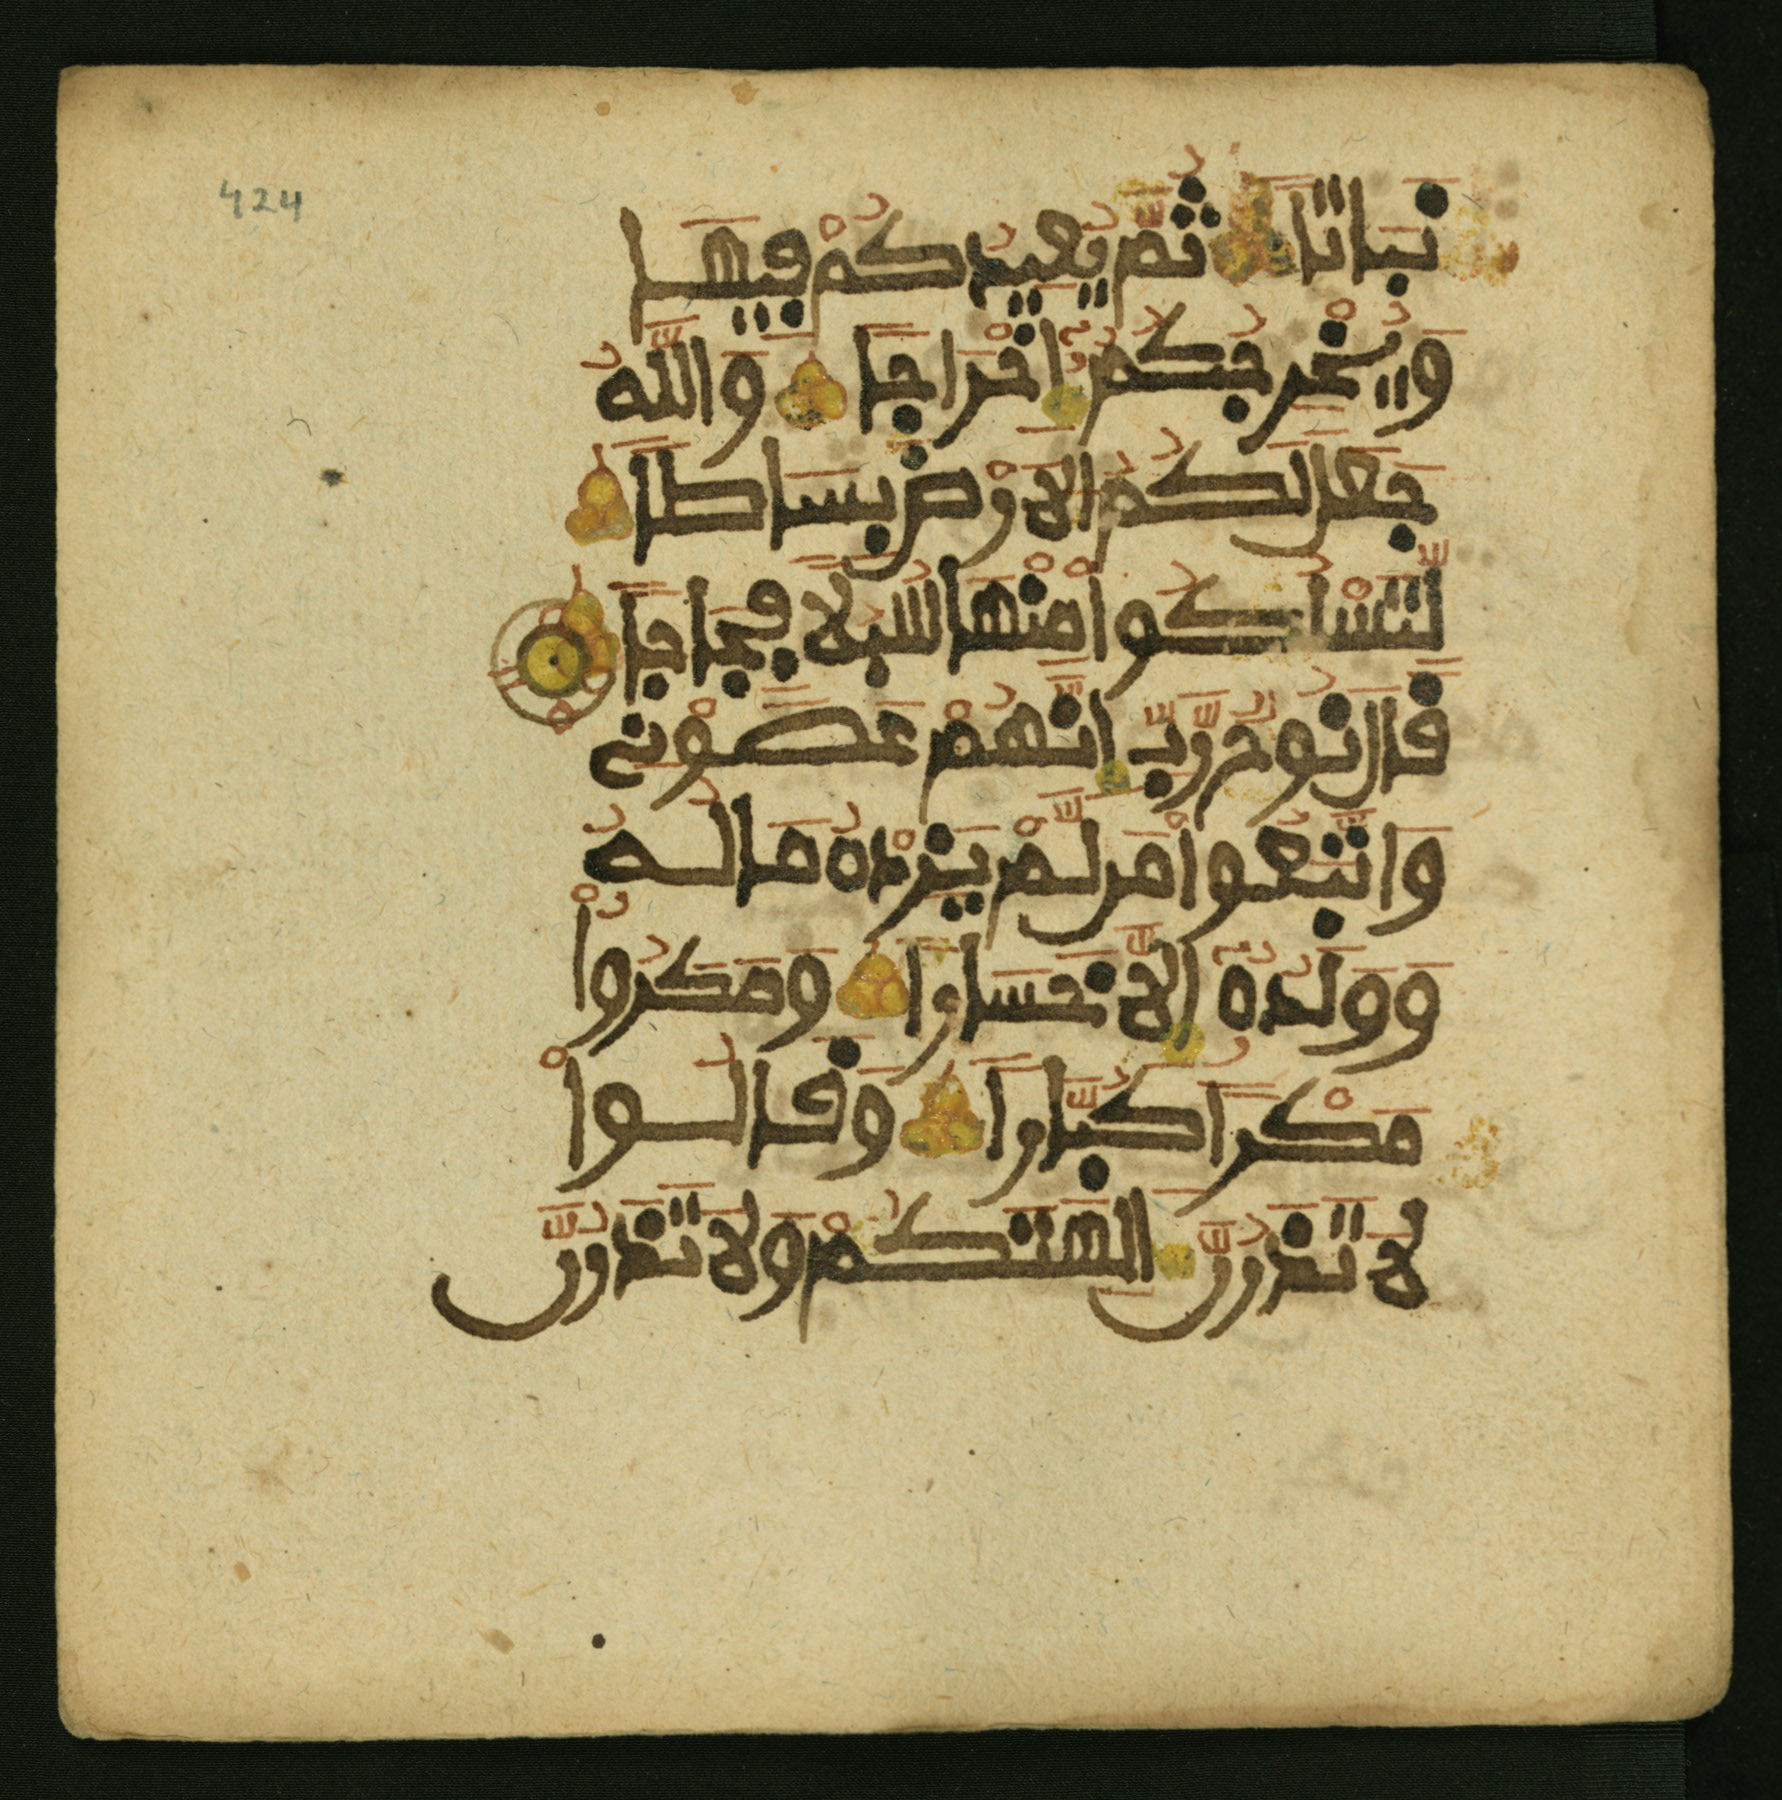 424
نَبَاتًا ثُمَّ يُعِيدُكُمْ فِيهَا
وَيُخْرِجُكُمُ إِخْرَاجًا وَاللَّهُ
جَعَلَ لَكُمُ الَارْضَ بِسَاطًا
لِّتَسْلُكُواْ مِنْهَا سُبُلًا فِجَاجًا
قَالَ نُوحٌ رَّبِّ إِنَّهُمْ عَصَوْنِي
وَاتَّبَعُواْ مَن لَّمْ يَزِدْهُ مَالُهُ
وَوَلَدُهُ إِلَّا خَسَارًا وَمَكَرُواْ
مَكْرًا كُبَّارًا وَقَالُواْ
لَا تَذَرُنَّ ءَالِهَتَكُمْ وَلَا تَذَرُنَّ